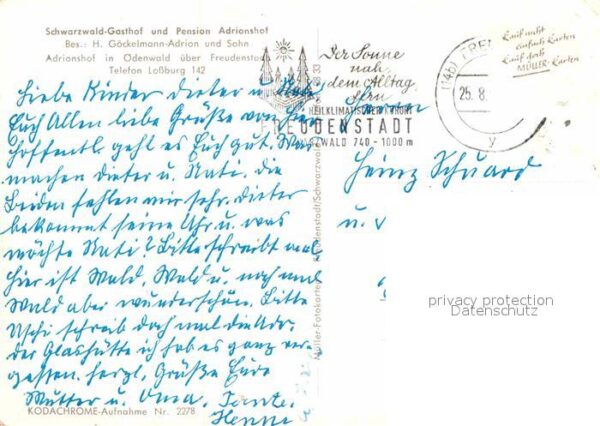 Schwarzwald-Gasthof und Pension Adrionshof
Bes.: H. Göckelmann-Adrion und Sohn
Adrionshof in Odenwald über Freudenstadt
Telefon Loßburg 142
Liebe Kinder Dieter u.
Euch Allen liebe Grüße von hier
hoffentl. geht es Euch gut. Was
machen Dieter u. Nati. Die
Beiden fehlen mir sehr. Dieter
bekommt seine Uhr u. was
möchte Nati? Bitte schreibt mal
hier ist Wald, Wald u. noch mal
Wald aber wunderschön. Bitte
Uschi schreib doch mal die Adr.
der Glashütte ich hab es ganz ver-
gessen. herzl. Grüße Eure
Mutter u. Oma. Tante.
Henni
KODACHROME-Aufnahme Nr. 2278
Der Sonne
nah
dem Alltag
fern
HEILKLIMATISCHER KURORT
FREUDENSTADT
SCHWARZWALD 740 - 1000 m
(14b) FREU
25.8.
y
Kauf nicht
einfach Karten
Kauf doch
MÜLLER-Karten
Herrn
Heinz Schuard
u.
privacy protection
Datenschutz